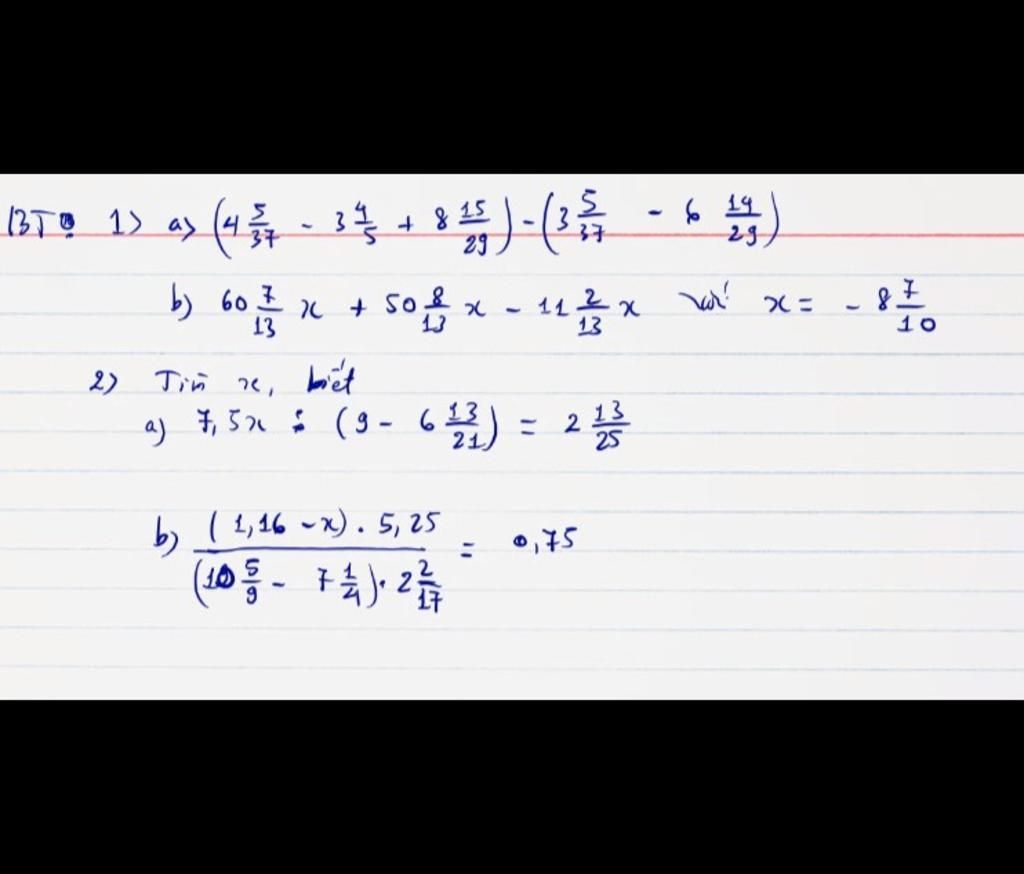 BT: 1) a) (4 5/37 - 3 4/5 + 8 15/29) - (3 5/37 - 6 14/29)
b) 60 7/13 x + 50 8/13 x - 11 2/13 x với x = - 8 7/10
2) Tìm x, biết
a) 7,5x : (9 - 6 13/21) = 2 13/25
b) (1,16 - x) . 5,25 / (10 5/9 - 7 1/4) . 2 2/17 = 0,75